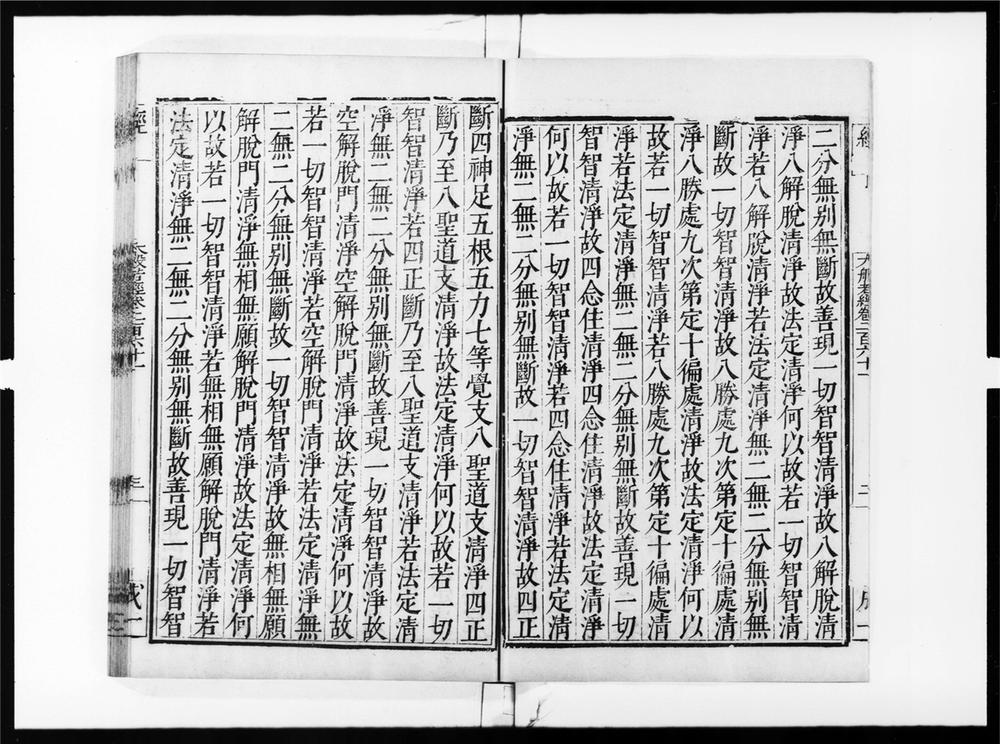 二分無别無斷故善現一切智智清淨故八解脫清
淨八解脫清淨故法定清淨何以故若一切智智清
淨若八解脫清淨若法定清淨無二無二分無别無
斷故一切智智清淨故八勝處九次第定十徧處清
淨八勝處九次第定十徧處清淨故法定清淨何以
故若一切智智清淨若八勝處九次第定十徧處清
淨若法定清淨無二無二分無别無斷故善現一切
智智清淨故四念住清淨四念住清淨故法定清淨
何以故若一切智智清淨若四念住清淨若法定清
淨無二無二分無别無斷故一切智智清淨故四正
斷四神足五根五力七等覺支八聖道支清淨四正
斷乃至八聖道支清淨故法定清淨何以故若一切
智智清淨若四正斷乃至八聖道支清淨若法定清
淨無二無二分無别無斷故善現一切智智清淨故
空解脫門清淨空解脫門清淨故法定清淨何以故
若一切智智清淨若空解脫門清淨若法定清淨無
二無二分無别無斷故一切智智清淨故無相無願
解脫門清淨無相無願解脫門清淨故法定清淨何
以故若一切智智清淨若無相無願解脫門清淨若
法定清淨無二無二分無别無斷故善現一切智智